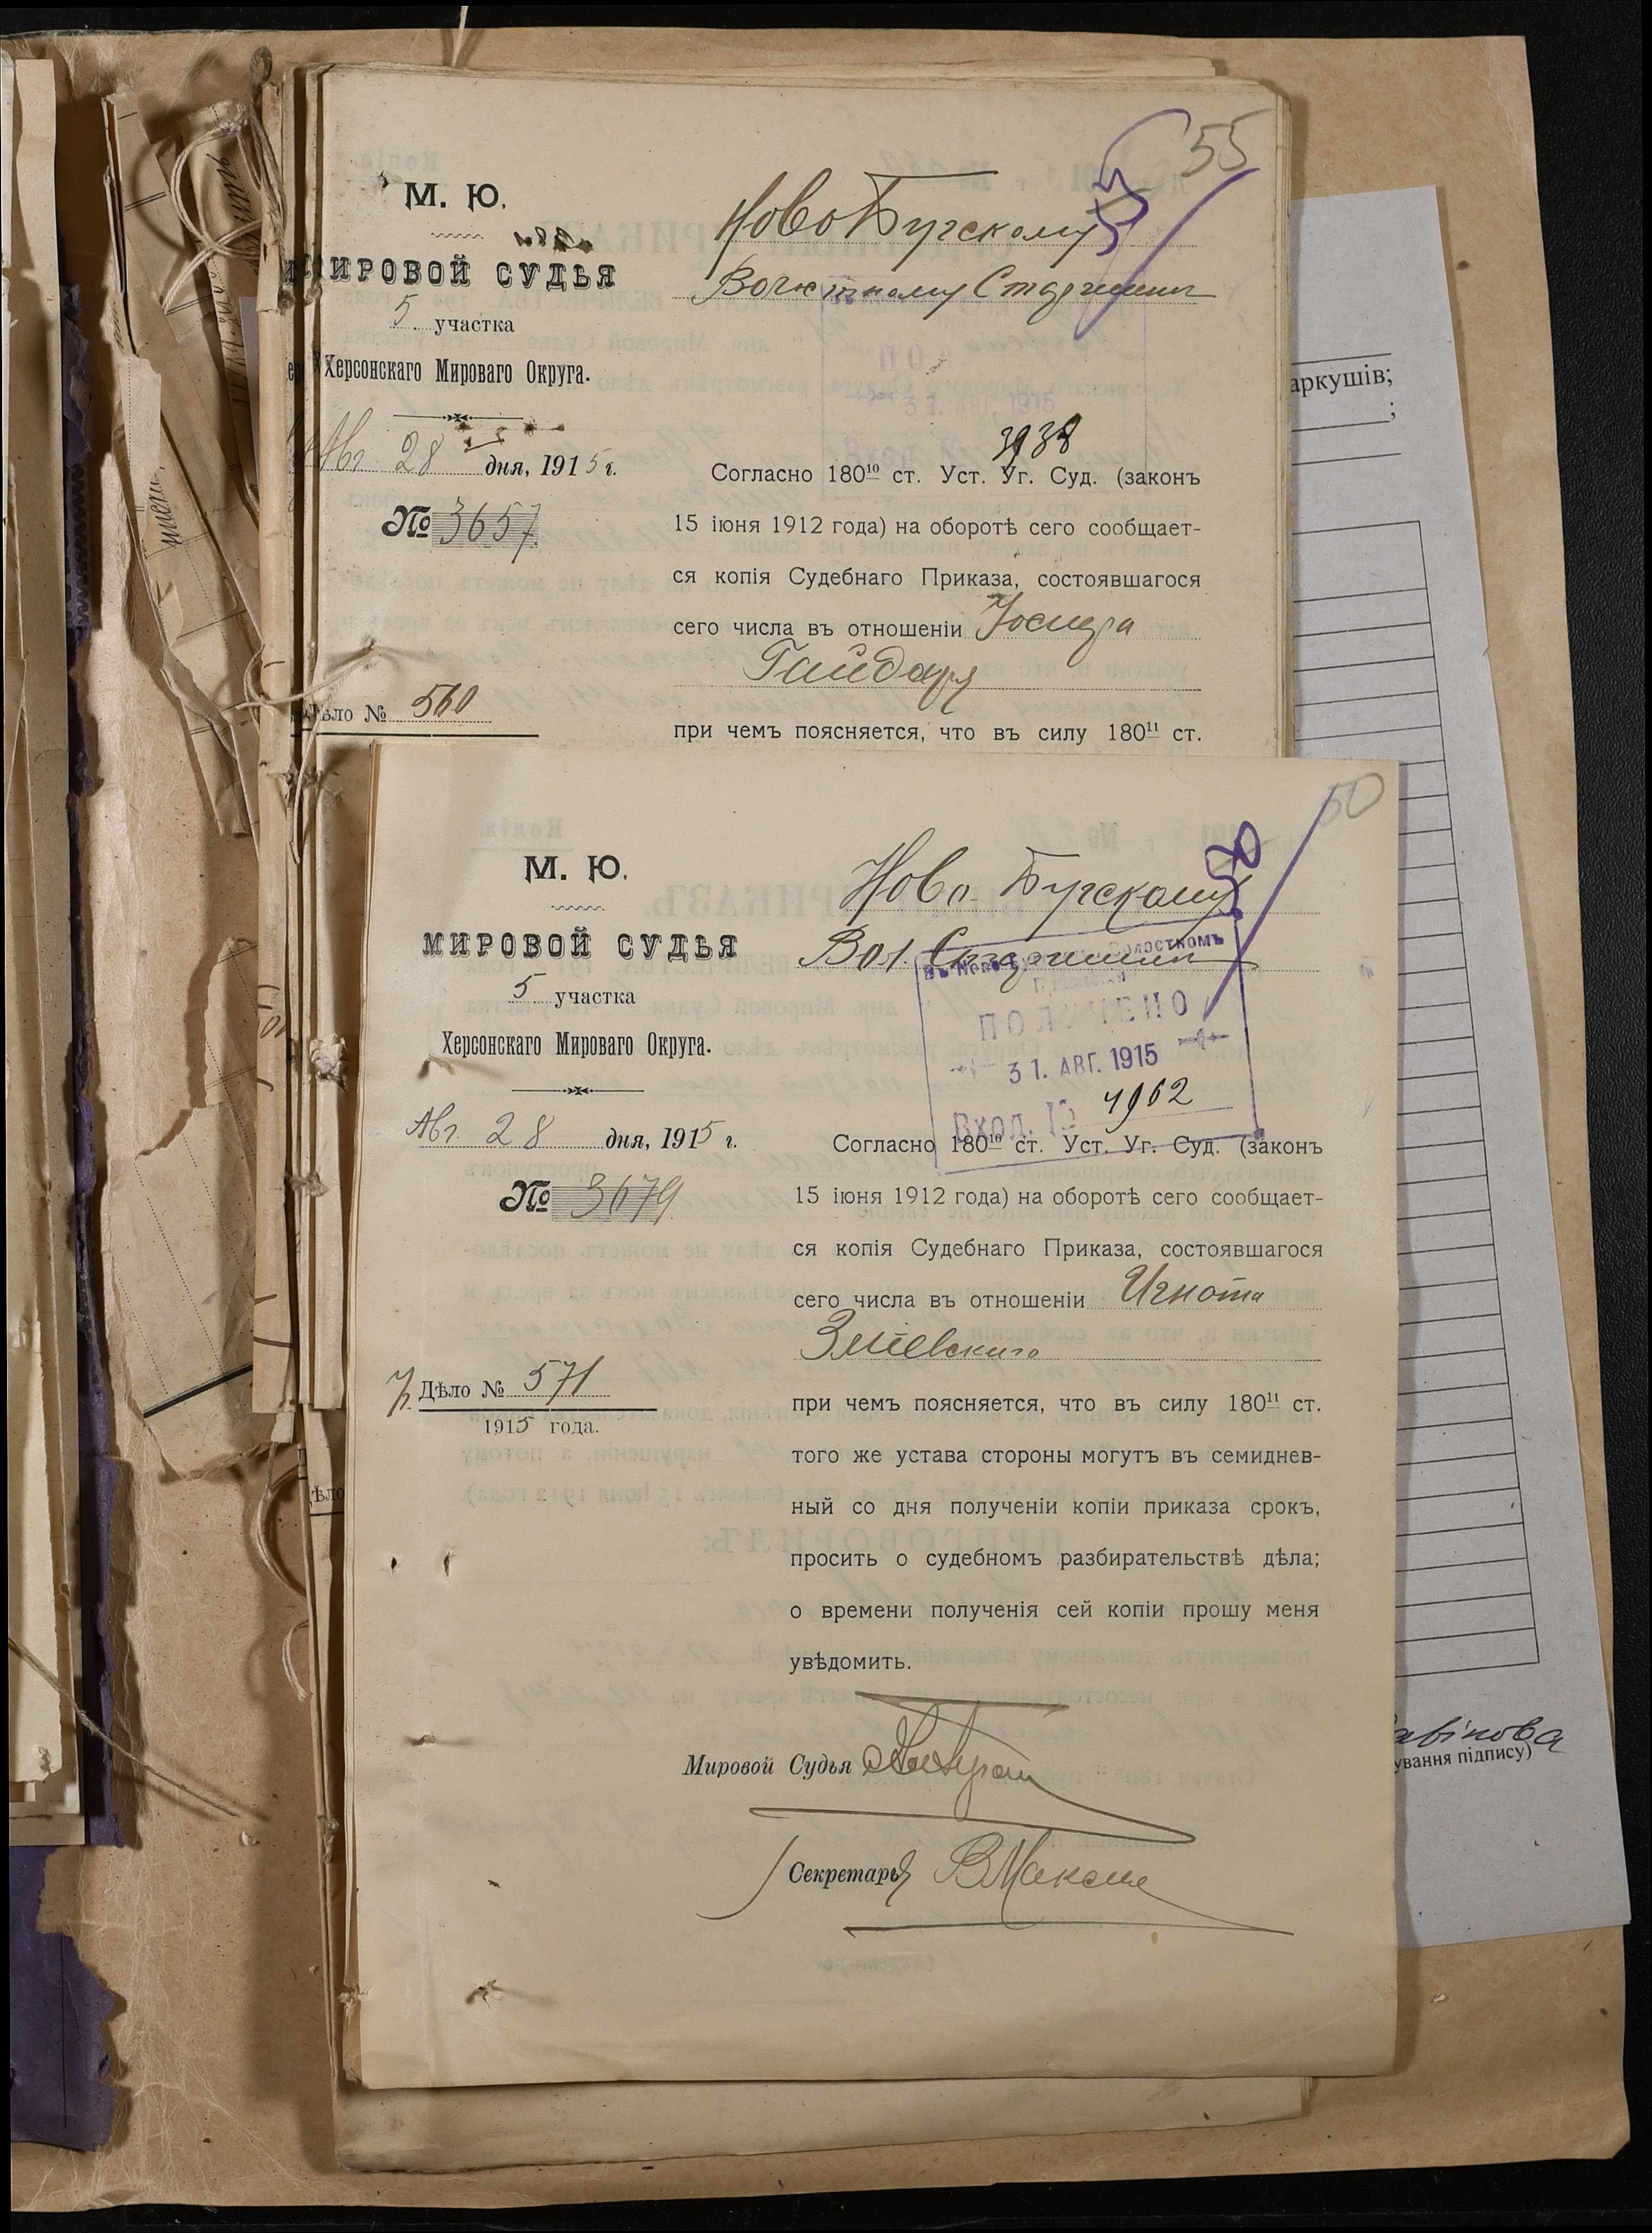 55
М. Ю.
МИРОВОЙ СУДЬЯ
5 участка
Херсонскаго Мироваго Округа.
Авг 28 дня, 1915 г.
№ 3657
Дѣло № 560
Ново Бугскому
Волостному Старшинѣ
31. АВГ. 1915
3938
Согласно 180¹⁰ ст. Уст. Уг. Суд. (законъ
15 іюня 1912 года) на оборотѣ сего сообщает-
ся копія Судебнаго Приказа, состоявшагося
сего числа въ отношеніи Іосифа
Гайдаря
при чемъ поясняется, что въ силу 180¹¹ ст.
50
М. Ю.
МИРОВОЙ СУДЬЯ
5 участка
Херсонскаго Мироваго Округа.
Авг. 28 дня, 1915 г.
№ 3679
Дѣло № 571
1915 года.
Ново-Бугскому
Вол. Старшинѣ
ПОЛУЧЕНО
31. АВГ. 1915
Вход. №
Согласно 180¹⁰ ст. Уст. Уг. Суд. (законъ
15 іюня 1912 года) на оборотѣ сего сообщает-
ся копія Судебнаго Приказа, состоявшагося
сего числа въ отношеніи Игната
Змiевскаго
при чемъ поясняется, что въ силу 180¹¹ ст.
того же устава стороны могутъ въ семиднев-
ный со дня полученіи копіи приказа срокъ,
просить о судебномъ разбирательствѣ дѣла;
о времени полученія сей копіи прошу меня
увѣдомить.
Мировой Судья
Секретарь
аркушів;
;
ування підпису)